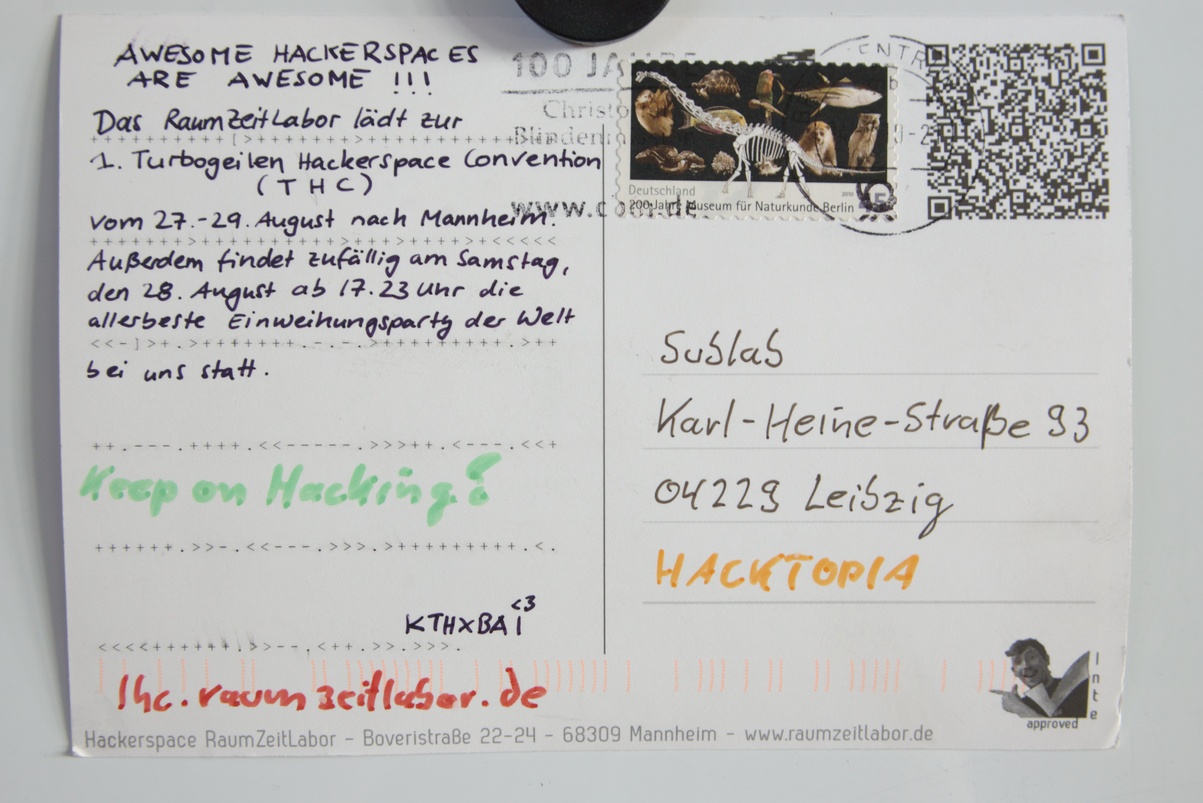 AWESOME HACKERSPACES
ARE AWESOME !!!
Das RaumZeitLabor lädt zur
1. Turbogeilen Hackerspace Convention
(THC)
vom 27.-29. August nach Mannheim.
Außerdem findet zufällig am Samstag,
den 28. August ab 17.23 Uhr die
allerbeste Einweihungsparty der Welt
<<-]>+.>+++++++.-----.>+++++++++.>++
bei uns statt.
++.---.++++.<<-----.>>>++.<---.<<+
Keep on Hacking!
++++++.>>-.<<----.>>>.>+++++++++.<.
<3
KTHXBAI
thc.raumzeitlabor.de
Hackerspace RaumZeitLabor - Boveristraße 22-24 - 68309 Mannheim - www.raumzeitlabor.de
100 JA
Christo
www.c
.de
Deutschland
200 Jahre Museum für Naturkunde Berlin
2010
Sublab
Karl-Heine-Straße 93
04229 Leibzig
HACKTOPIA
Inte
approved